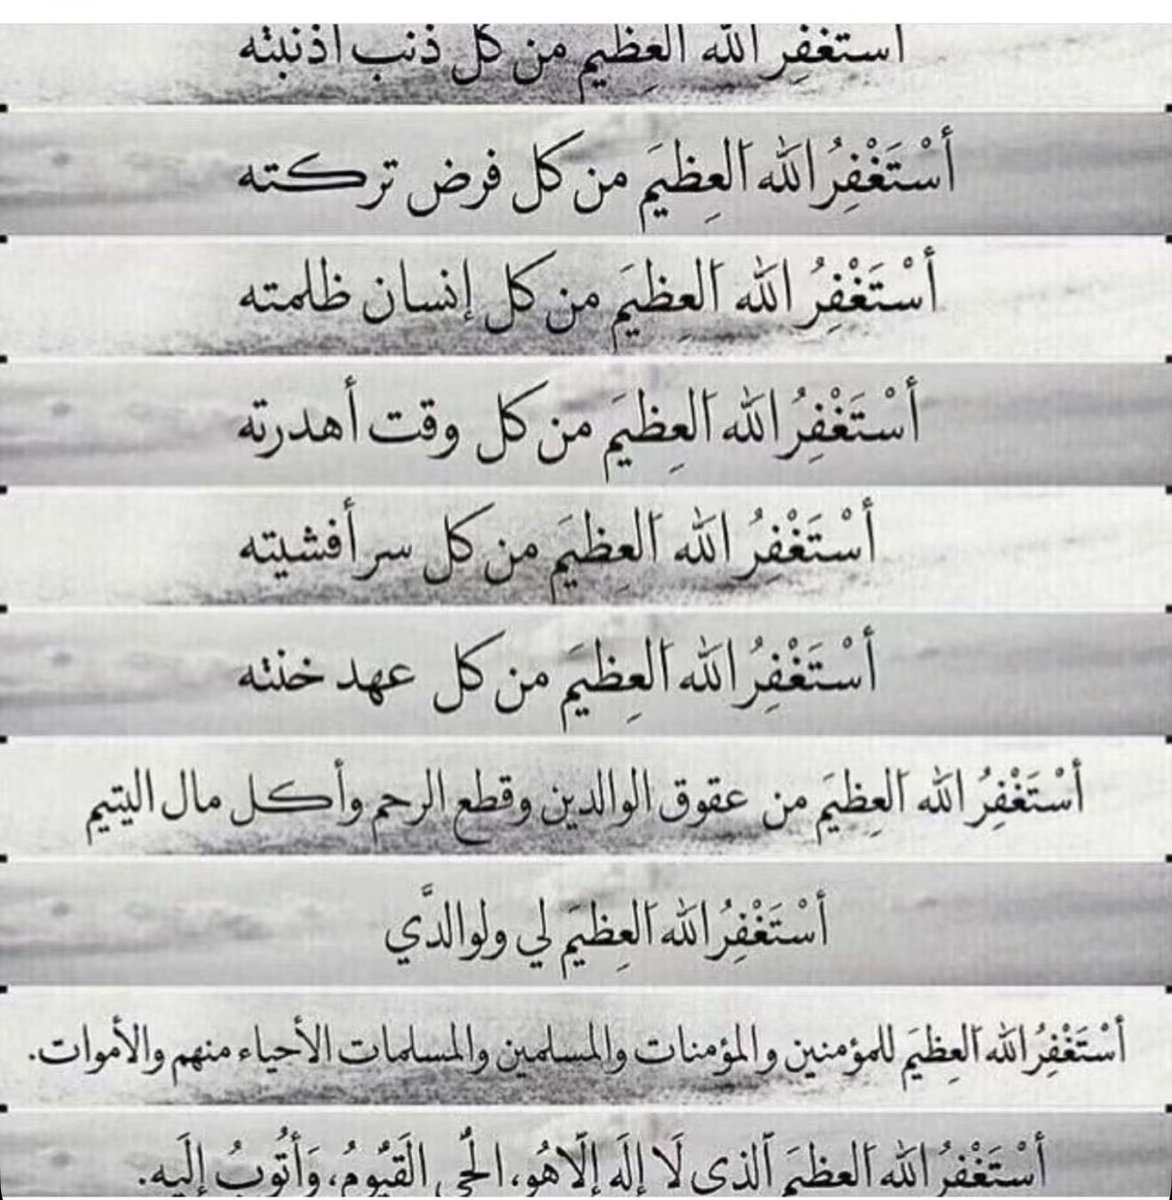 أستغفِر الله العِظيم من كل ذنب أذنبته
أسْتَغْفِرُ الله اَلعِظيمَ من كل فرض تركته
أسْتَغْفِرُ الله اَلعِظيمَ من كل إنسان ظلمته
أسْتَغْفِرُ الله اَلعِظيمَ من كل وقت أهدرته
أسْتَغْفِرُ الله اَلعِظيمَ من كل سر أفشيته
أسْتَغْفِرُ الله اَلعِظيمَ من كل عهد خنته
أسْتَغْفِرُ الله اَلعِظيمَ من عقوق الوالدين وقطع الرحم وأكل مال اليتيم
أسْتَغْفِرُ الله اَلعِظيمَ لي ولوالدَّي
أسْتَغْفِرُ الله اَلعِظيمَ للمؤمنين والمؤمنات والمسلمين والمسلمات الأحياء منهم والأموات.
أسْتَغْفِرُ الله اَلعظيمَ اَلذي لَا إلَه إلَّا هُو، الْحُي الَقيُومُ، وَأتُوبُ إليَه.